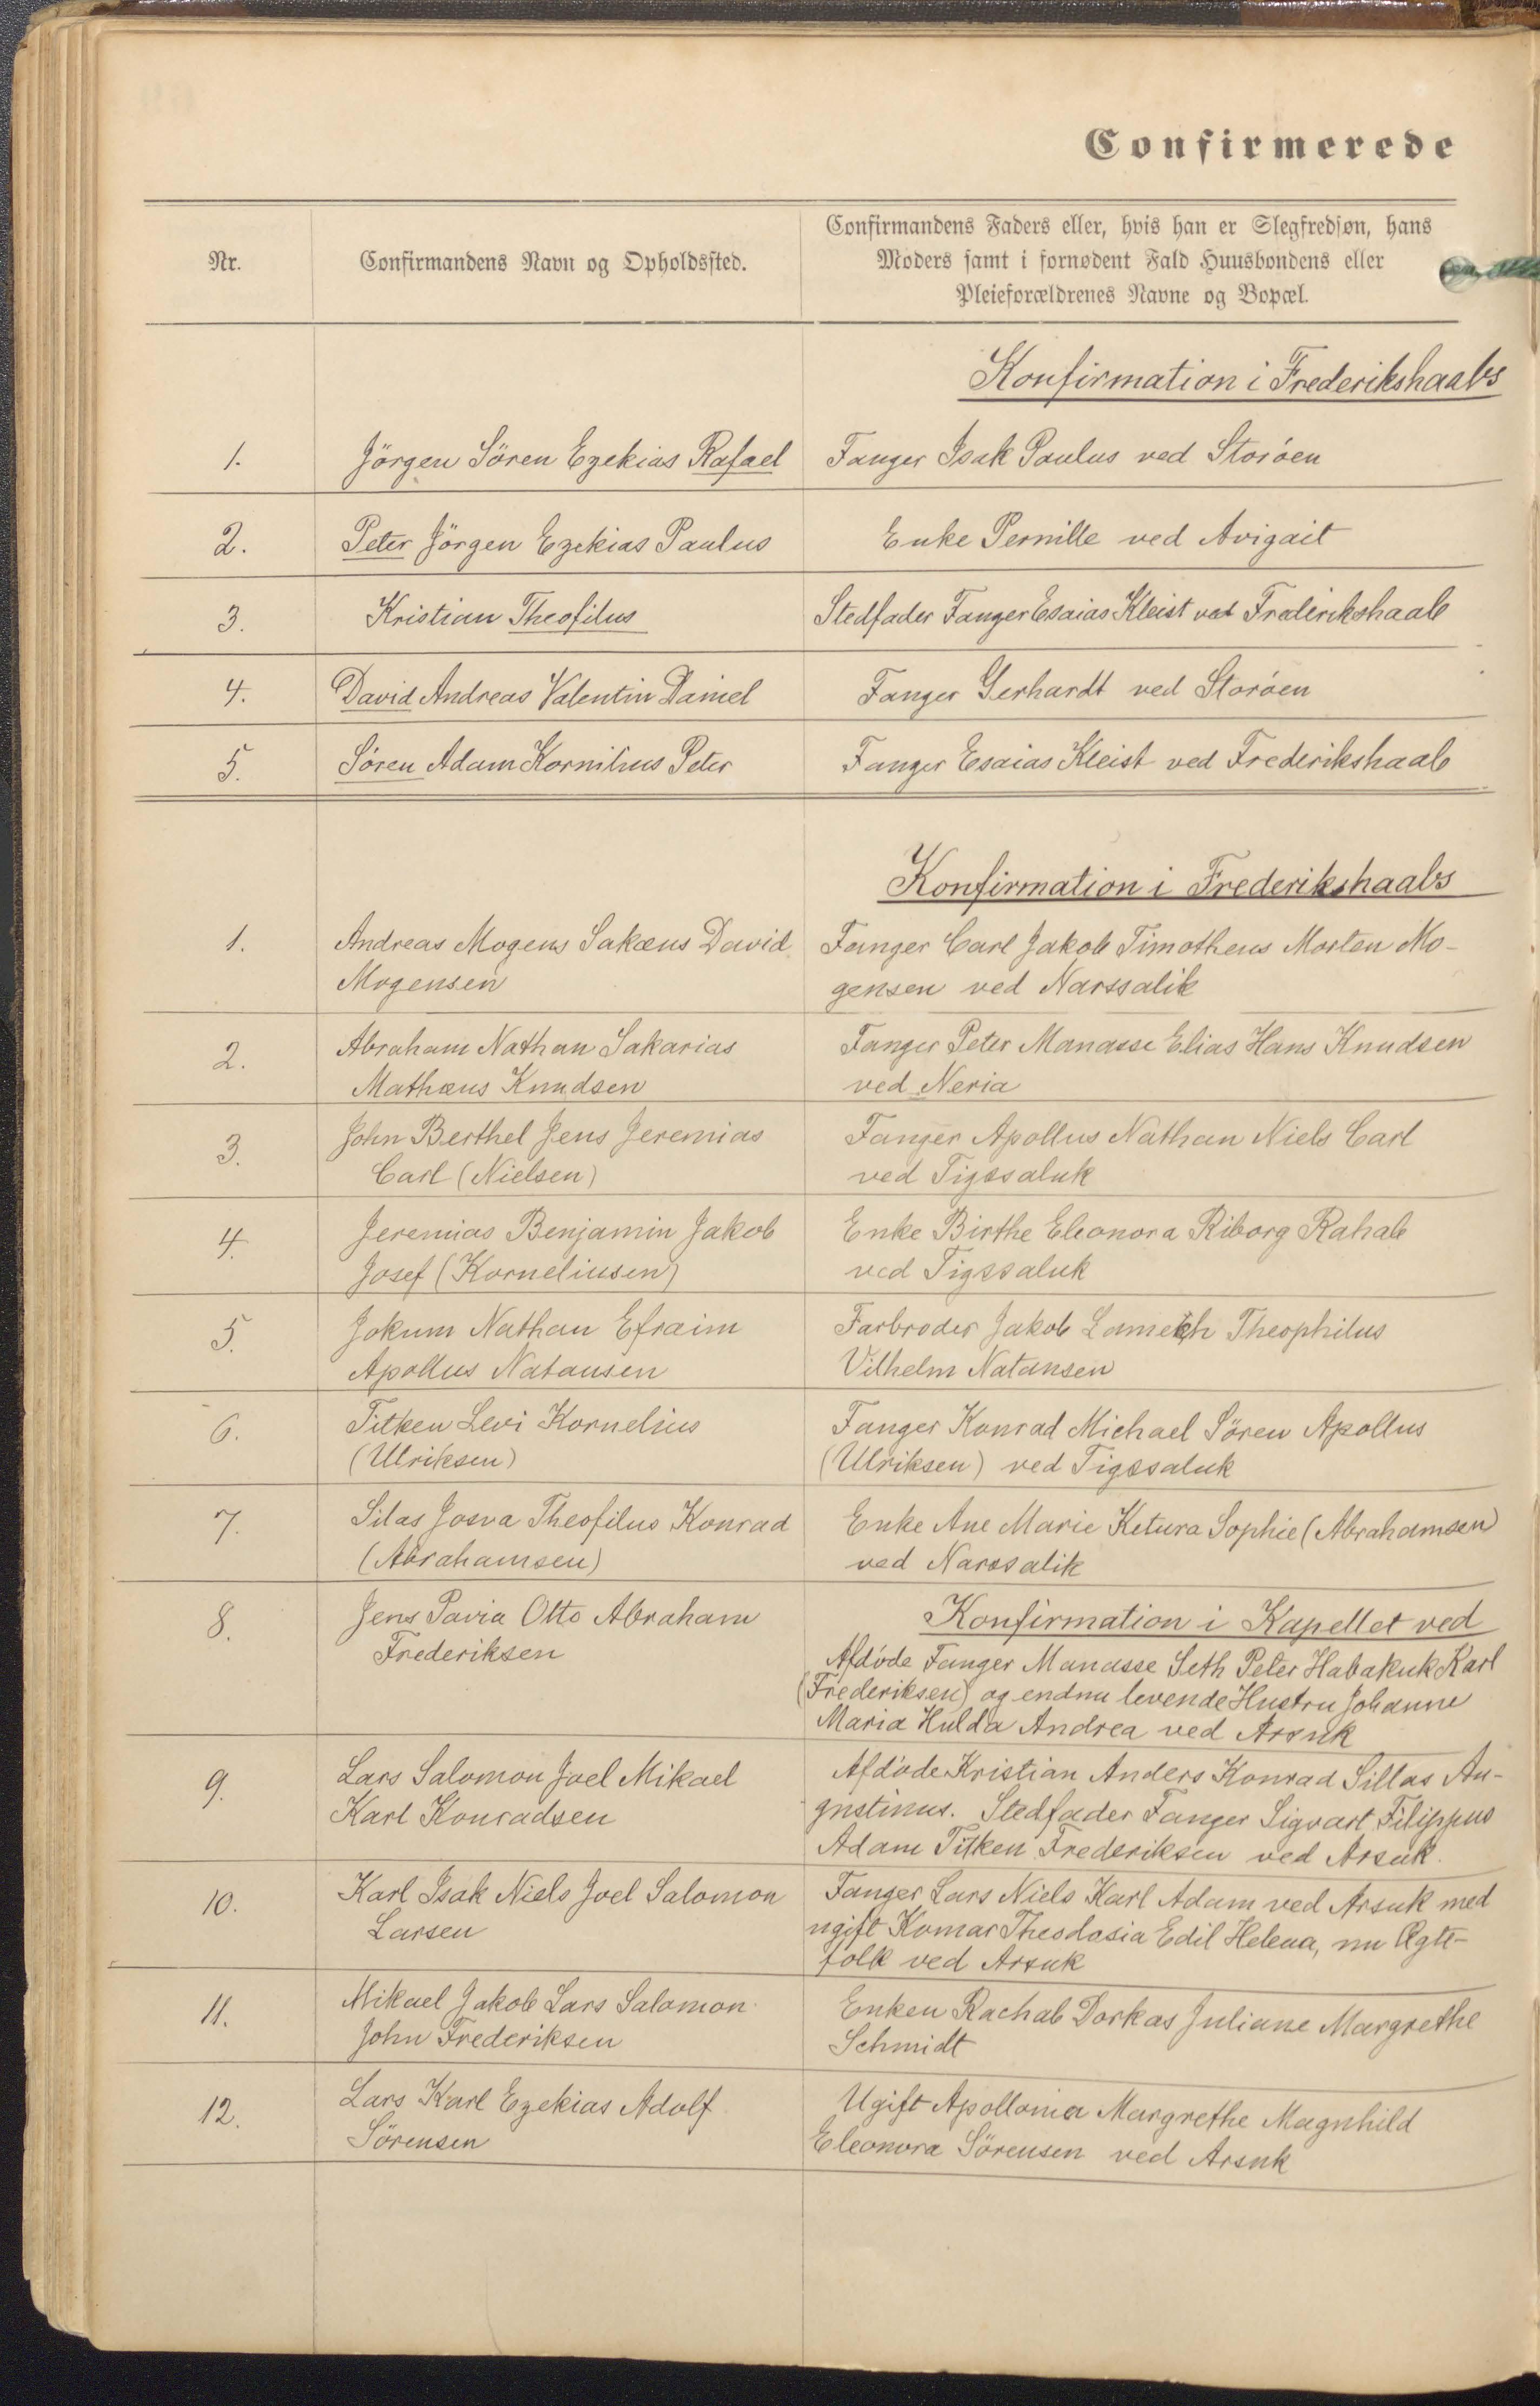 Confirmerede
Nr.
Confirmandens Navn og Opholdssted.
Confirmandens Faders eller, hvis han er Slegfredsøn, hans
Moders samt i fornødent Fald Huusbondens eller
Pleieforældrenes Navne og Bopæl.
Konfirmation i Frederikshaabs
1. Jörgen Sören Ezekias Rafael Fanger Isak Paulus ved Storöen
2. Peter Jörgen Ezekias Paulus Enke Pernille ved Avigait
3. Kristian Theofilus Stedfader Fanger Esaias Kleist ved Frederikshaab
4. David Andreas Valentin Daniel Fanger Gerhardt ved Storöen
5. Sören Adam Kornilius Peter Fanger Esaias Kleist ved Frederikshaab
Konfirmation i Frederikshaabs
1. Andreas Mogens Sakæus David Fanger Carl Jakob Timotheus Morten Mo-
Mogensen gensen ved Narssalik
2. Abraham Nathan Sakarias Fanger Peter Manasse Elias Hans Knudsen
Mathæus Knudsen ved Neria
3. John Berthel Jens Jeremias Fanger Apollus Nathan Niels Carl
Carl (Nielsen) ved Tigssaluk
4. Jeremias Benjamin Jakob Enke Birthe Eleonora Riborg Rahab
Josef (Korneliusen) ved Tigssaluk
5. Jokum Nathan Efraim Farbroder Jakob Lamekh Theophilus
Apollus Natansen Vilhelm Natansen
6. Titken Levi Kornelius Fanger Konrad Michael Sören Apollus
(Ulriksen) (Ulriksen) ved Tigssaluk
7. Silas Josva Theofilus Konrad Enke Ane Marie Ketura Sophie (Abrahamsen)
(Abrahamsen) ved Narssalik
8. Jens Pavia Otto Abraham Konfirmation i Kapellet ved
Frederiksen Afdöde Fanger Manasse Seth Peter Habakuk Karl
(Frederiksen) og endnu levende Hustru Johanne
Maria Hulda Andrea ved Arsuk
9. Lars Salomon Joel Mikael Afdöde Kristian Anders Konrad Sillas Au-
Karl Konradsen gustinus. Stedfader Fanger Sigvart Filippus
Adam Titken Frederiksen ved Arsuk.
10. Karl Isak Niels Joel Salomon Fanger Lars Niels Karl Adam ved Arsuk med
Larsen ugift Komar Theodosia Edil Helena, nu Ægte-
folk ved Arsuk
11. Mikael Jakob Lars Salomon Enken Rachab Dorkas Juliane Margrethe
John Frederiksen Schmidt
12. Lars Karl Ezekias Adolf Ugift Apollonia Margrethe Magnhild
Sörensen Eleonora Sörensen ved Arsuk